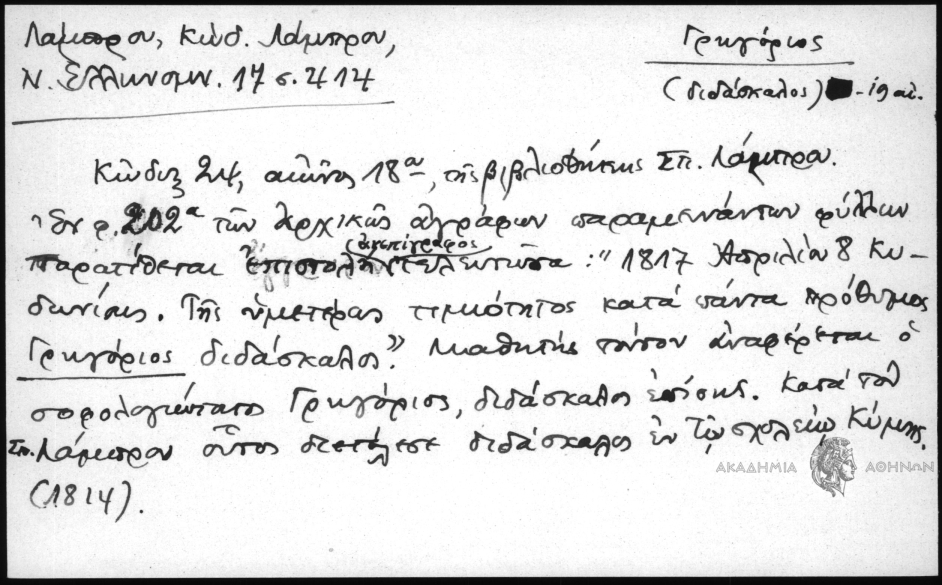 Λάμπρου, Κώδ. Λάμπρου,
Ν. Ἑλληνομν. 17 σ. 414
Γρηγόριος
(διδάσκαλος) - 19 αἰ.
Κῶδιξ 24, αἰῶνος 18ου, τῆς βιβλιοθήκης Σπ. Λάμπρου.
Ἐν φ. 202α τῶν ἀρχικῶς ἀγράφων παραμεινάντων φύλλων
(ἀνεπίγραφος)
παρατίθεται ἐπιστολὴ τελευτῶσα: "1817 Ἀπριλίου 8 Κυ-
δωνίαις. Τῆς ὑμετέρας τιμιότητος κατὰ πάντα πρόθυμος
Γρηγόριος διδάσκαλος". Μαθητὴς τούτου ἀναφέρεται ὁ
σοφολογιώτατος Γρηγόριος, διδάσκαλος ἐπίσης. Κατὰ τὸν
Σπ. Λάμπρον οὗτος διετέλεσε διδάσκαλος ἐν τῷ σχολείῳ Κύμης.
(1814).
ΑΚΑΔΗΜΙΑ ΑΘΗΝΩΝ